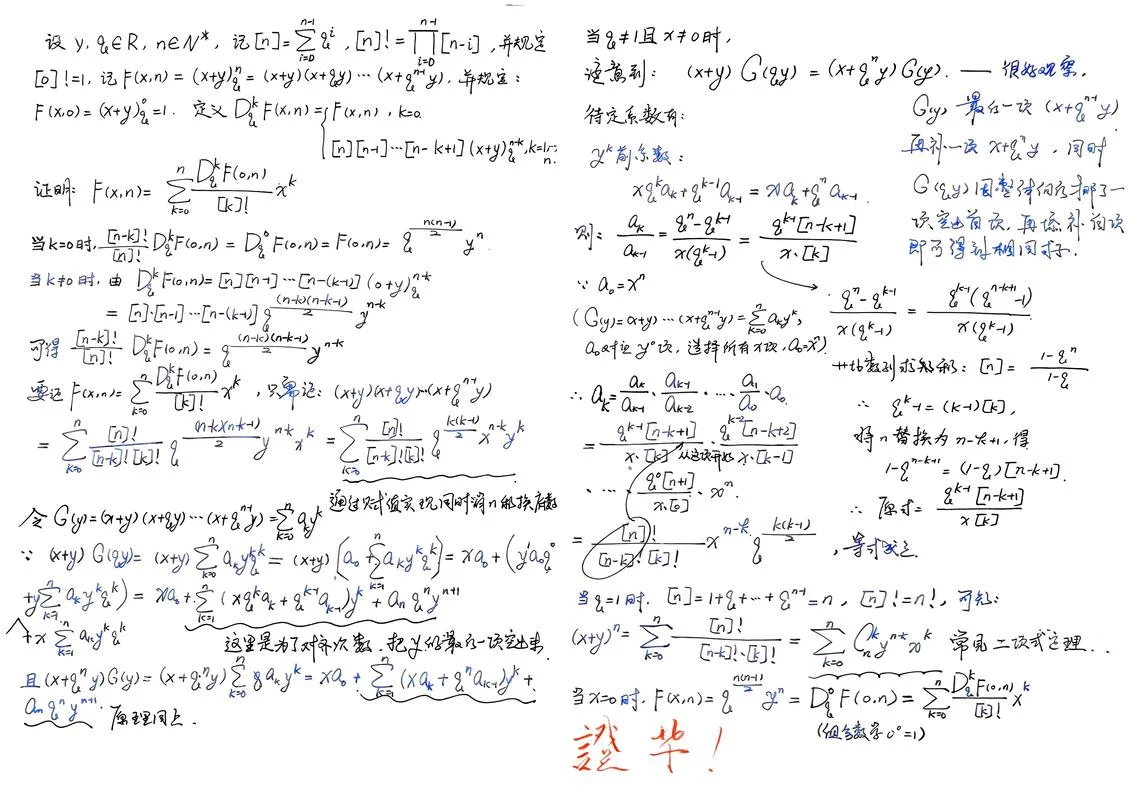 设 y, q∈R, n∈N*, 记 [n]=\sum_{i=0}^{n-1} q^i, [n]!=\prod_{i=0}^{n-1}[n-i], 并规定
[0]!=1, 记 F(x,n)=(x+y)_q^n=(x+y)(x+qy)⋯(x+q^{n-1}y), 并规定:
F(x,0)=(x+y)_q^0=1. 定义 D_q^k F(x,n)={F(x,n), k=0
[n][n-1]⋯[n-k+1](x+y)_q^{n-k}, k=1,⋯,n.
证明: F(x,n)=\sum_{k=0}^{n}\frac{D_q^k F(0,n)}{[k]!}x^k
当k=0时, \frac{[n-k]!}{[n]!}D_q^k F(0,n)=D_q^0 F(0,n)=F(0,n)=q^{\frac{n(n-1)}{2}}y^n
当k≠0时, 由 D_q^k F(0,n)=[n][n-1]⋯[n-(k-1)](0+y)_q^{n-k}
=[n]·[n-1]⋯[n-(k-1)]q^{\frac{(n-k)(n-k-1)}{2}}y^{n-k}
可得 \frac{[n-k]!}{[n]!}D_q^k F(0,n)=q^{\frac{(n-k)(n-k-1)}{2}}y^{n-k}
要证 F(x,n)=\sum_{k=0}^{n}\frac{D_q^k F(0,n)}{[k]!}x^k, 只需证: (x+y)(x+qy)⋯(x+q^{n-1}y)
=\sum_{k=0}^{n}\frac{[n]!}{[n-k]![k]!}q^{\frac{(n-k)(n-k-1)}{2}}y^{n-k}x^k=\sum_{k=0}^{n}\frac{[n]!}{[n-k]![k]!}q^{\frac{k(k-1)}{2}}x^{n-k}y^k
通过赋值实现,同时将n的换
令 G(y)=(x+y)(x+qy)⋯(x+q^{n-1}y)=\sum_{k=0}^{n}a_k y^k
∵ (x+y)G(qy)=(x+y)\sum_{k=0}^{n}a_k y^k q^k=(x+y)(a_0+\sum_{k=1}^{n}a_k y^k q^k)=xa_0+(y^1a_0q^0
+y\sum_{k=1}^{n}a_k y^k q^k)=xa_0+\sum_{k=1}^{n}(xq^k a_k+q^{k-1}a_{k-1})y^k+a_n q^n y^{n+1}
+x\sum_{k=1}^{n}a_k y^k q^k
这里是为了对齐次数,把y的最后一项突出来
且 (x+q^n y)G(y)=(x+q^n y)\sum_{k=0}^{n}a_k y^k=xa_0+\sum_{k=1}^{n}(xa_k+q^n a_{k-1})y^k+
a_n q^n y^{n+1}. 原理同上.
当q≠1且x≠0时,
注意到: (x+y)G(qy)=(x+q^n y)G(y). —— 很好观察,
G(y) 最后一项 (x+q^{n-1}y)
再补一项 x+q^n y, 同时
G(qy)因整体向后挪了一
项空出首项,再添补首项
即可得到相同式子.
待定系数有:
y^k前系数:
xq^k a_k+q^{k-1}a_{k-1}=xa_k+q^n a_{k-1}
则: \frac{a_k}{a_{k-1}}=\frac{q^n-q^{k-1}}{x(q^k-1)}=\frac{q^{k-1}[n-k+1]}{x·[k]}
∵ a_0=x^n
(G(y)=(x+y)⋯(x+q^{n-1}y)=\sum_{k=0}^{n}a_k y^k,
a_0对应y^0项,选择所有x项,a_0=x^n)
\frac{q^n-q^{k-1}}{x(q^k-1)}=\frac{q^{k-1}(q^{n-k+1}-1)}{x(q^k-1)}
等比数列求和: [n]=\frac{1-q^n}{1-q}
∴ q^k-1=(k-1)[k],
将n替换为n-k+1, 得
1-q^{n-k+1}=(1-q)[n-k+1].
∴ 原式=\frac{q^{k-1}[n-k+1]}{x[k]}
∴ a_k=\frac{a_k}{a_{k-1}}·\frac{a_{k-1}}{a_{k-2}}·⋯·\frac{a_1}{a_0}·a_0
=\frac{q^{k-1}[n-k+1]}{x·[k]}·\frac{q^{k-2}[n-k+2]}{x·[k-1]}
从这项开始
·⋯·\frac{q^0[n+1]}{x·[0]}·x^n.
=\frac{[n]!}{[n-k]![k]!}x^{n-k}q^{\frac{k(k-1)}{2}}, 等式成立.
当q=1时, [n]=1+q+⋯+q^{n-1}=n, [n]!=n!, 可知:
(x+y)^n=\sum_{k=0}^{n}\frac{[n]!}{[n-k]!·[k]!}=\sum_{k=0}^{n}C_n^k y^{n-k}x^k 常见二项式定理.
当x=0时, F(x,n)=q^{\frac{n(n-1)}{2}}y^n=D_q^0 F(0,n)=\sum_{k=0}^{n}\frac{D_q^k F(0,n)}{[k]!}x^k
(组合数学0^0=1)
證毕!